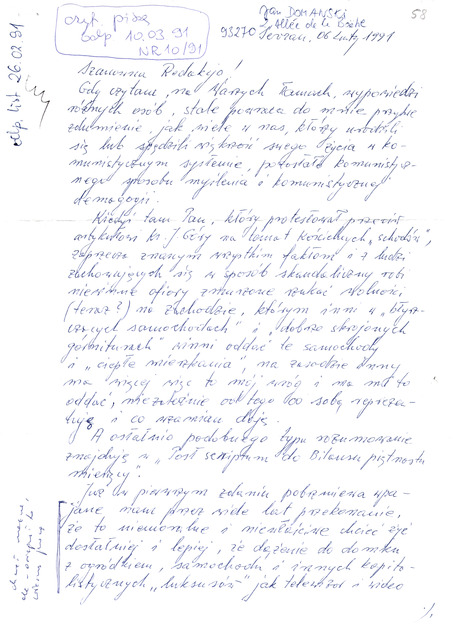 58
czyt. piszą
odp 10.03 91
NR 10/91
odp. list 26.02 91
Jan DOMAŃSKI
2 Allée de la
93270 Sevran, 06 luty 1991
Szanowna Redakcjo!
Gdy czytam, na Waszych łamach, wypowiedzi
różnych osób, stale powraca do mnie przykre
zdumienie, jak wiele w nas, którzy urodzili
się lub spędzili większość swego życia w ko-
munistycznym systemie, pozostało komunistycz-
nego sposobu myślenia i komunistycznej
demagogii.
Kiedyś tam Pan, który protestował przeciw
artykułom ks. J. Góry na temat Kościelnych „schodów",
zaprzecza znanym wszystkim faktom i z ludzi
zachowujących się w sposób skandaliczny robi
niewinne ofiary zmuszone szukać wolności
(teraz?) na zachodzie, którym inni w „błysz-
czących samochodach" i „dobrze skrojonych
garniturach" winni oddać te samochody
i „ciepłe mieszkania", na zasadzie inny
ma więcej więc to mój wróg i ma mi to
oddać, niezależnie od tego co sobą reprezen-
tuję i co w zamian daję.
A ostatnio podobnego typu rozumowanie
znajduję w „Post scriptum do Bilansu piętnastu
miesięcy".
Już w pierwszym zdaniu pobrzmiewa wpa-
jane nam przez wiele lat przekonanie,
że to niemoralne i niewłaściwe chcieć żyć
dostatniej i lepiej, że dążenie do domku
z ogródkiem, samochodu i innych kapita-
listycznych „luksusów" jak telewizor i wideo
./.